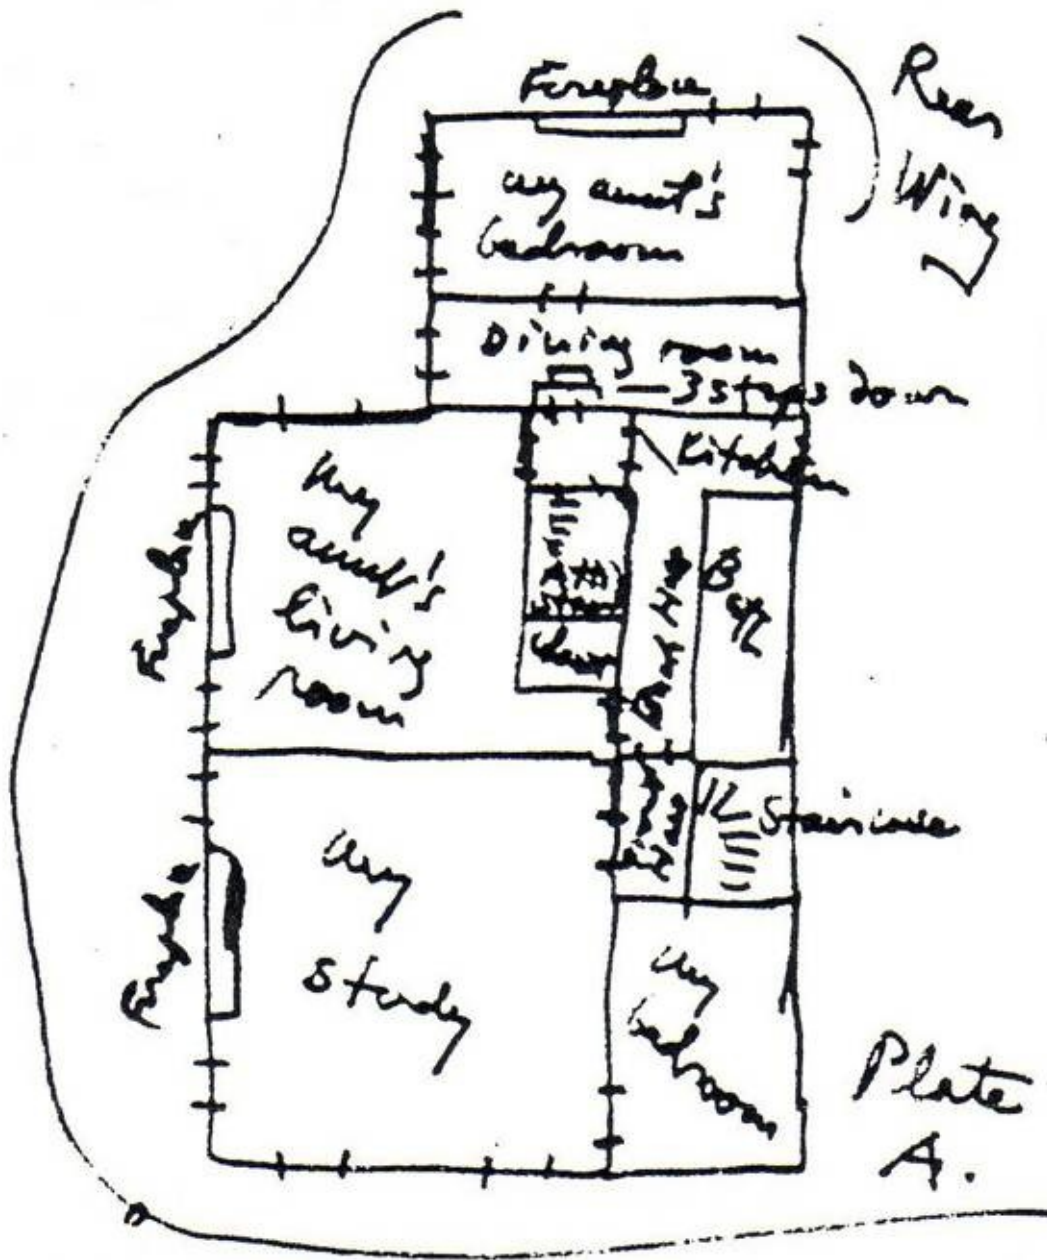 Fireplace
Rear
Wing
my aunt's
bedroom
Dining room
3 steps down
Kitchen
my
aunt's
living
room
Fireplace
Attic
stairs
Back Hall
Bath
Staircase
Fireplace
my
study
my
bedroom
Plate
A.